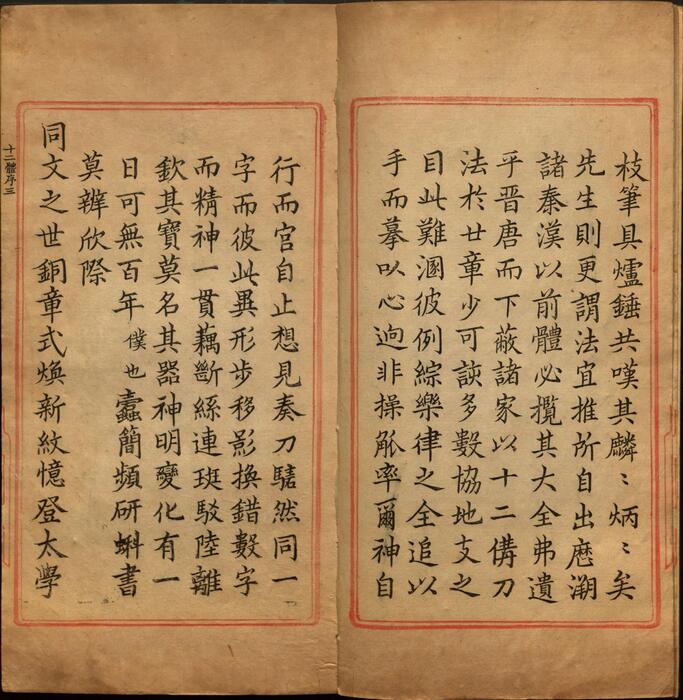 枝筆具爐錘共嘆其麟〻炳〻矣
先生則更謂法宜推所自出厯溯
諸秦漢以前體必攬其大全弗遺
乎晉唐而下蔽諸家以十二備刀
法於廿章少可該多數協地支之
目此難溷彼例綜樂律之全追以
手而摹以心逈非操觚率爾神自
行而官自止想見奏刀騞然同一
字而彼此異形步移影換錯數字
而精神一貫藕斷絲連斑駁陸離
欽其寶莫名其器神明變化有一
日可無百年僕也蠹簡頻研蝌書
莫辨欣際
同文之世銅章式煥新紋憶登太學
十二體序三